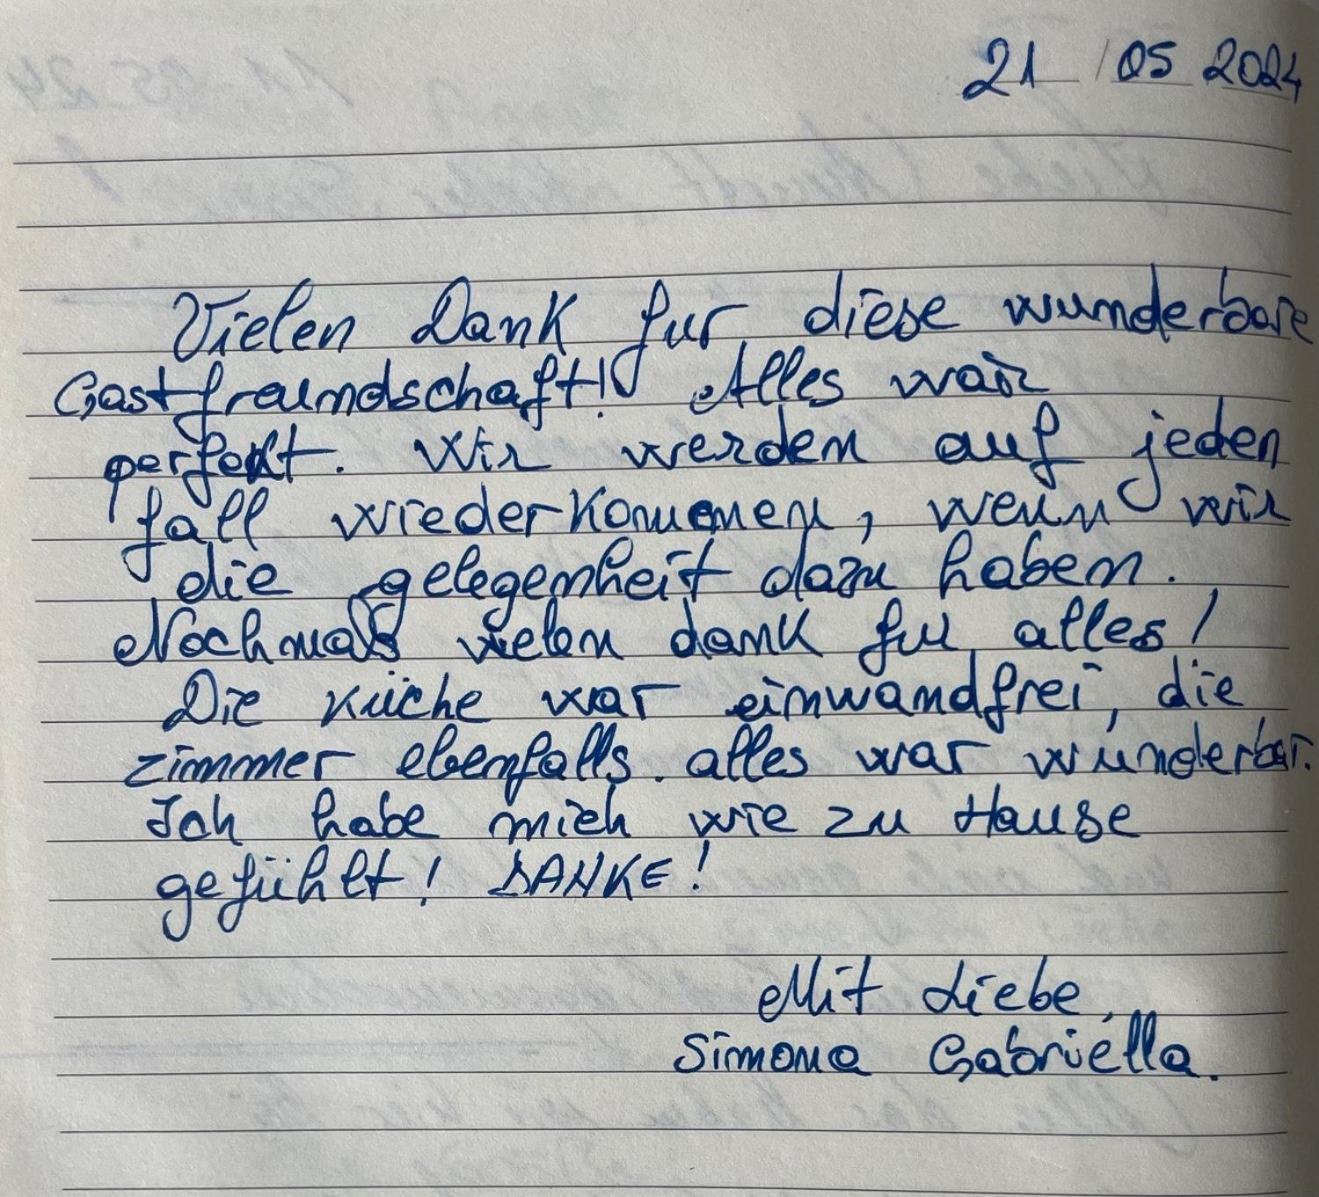 21 / 05 2024
Vielen Dank fur diese wunderbare
Gastfreundschaft! Alles war
perfekt. Wir werden auf jeden
fall wiederkommen, wenn wir
die gelegenheit dazu haben.
Nochmals vielen dank fur alles!
Die Küche war einwandfrei, die
zimmer ebenfalls. alles war wunderbar.
Ich habe mich wie zu Hause
gefühlt! DANKE!
Mit Liebe,
Simona Gabriella.